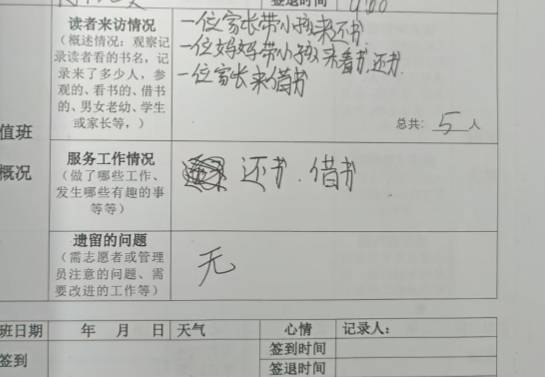 签退时间
读者来访情况
（概述情况：观察记
录读者看的书名，记
录来了多少人，参
观的、看书的、借书
的、男女老幼、学生
或家长等，）
一位家长带小孩来还书
一位妈妈带小孩来看书,还书.
一位家长来借书
总共：5人
值班
概况
服务工作情况
（做了哪些工作、
发生哪些有趣的事
等等）
还书.借书
遗留的问题
（需志愿者或管理
员注意的问题、需
要改进的工作等）
无
班日期 年 月 日 天气 心情 记录人：
签到 签到时间
签退时间